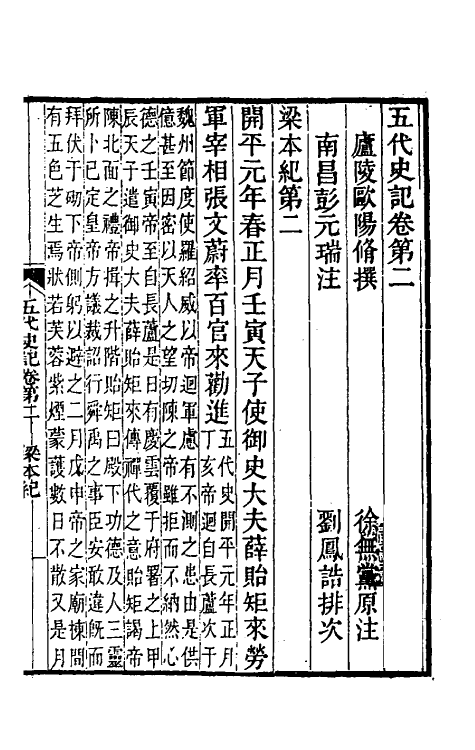 五代史記卷第二
廬陵歐陽脩撰 徐無黨原注
南昌彭元瑞注 劉鳳誥排次
梁本紀第二
開平元年春正月壬寅天子使御史大夫薛貽矩來勞
軍宰相張文蔚率百官來勸進
五代史開平元年正月
丁亥帝迴自長蘆次于
魏州節度使羅紹威以帝迴軍慮有不測之患由是供
億甚至因密以天人之望切陳之帝雖拒而不納然心
德之壬寅帝至自長蘆是日有慶雲覆于府署之上甲
辰天子遣御史大夫薛貽矩來傳禪代之意貽矩謁帝
陳北面之禮帝揖之升階貽矩曰殿下功德及人三靈
所卜已定皇帝方議裁詔行舜禹之事臣安敢違既而
拜伏于砌下帝側躬以避之二月戊申帝之家廟棟間
有五色芝生焉狀若芙蓉紫煙蒙護數日不散又是月
五代史記卷第二 梁本紀 一